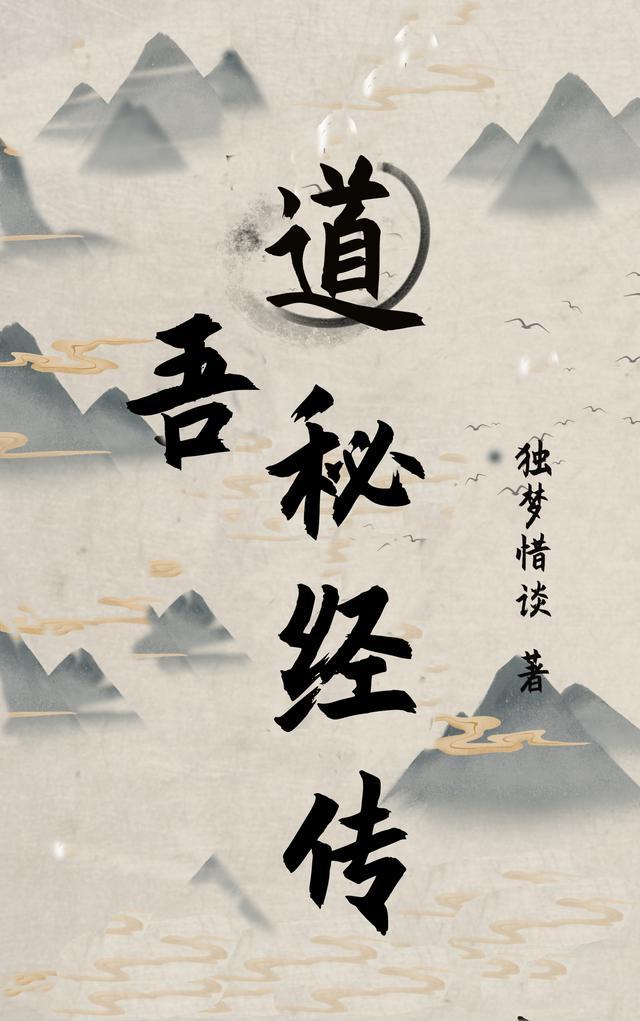 吾
道秘经传
独梦惜谈 著